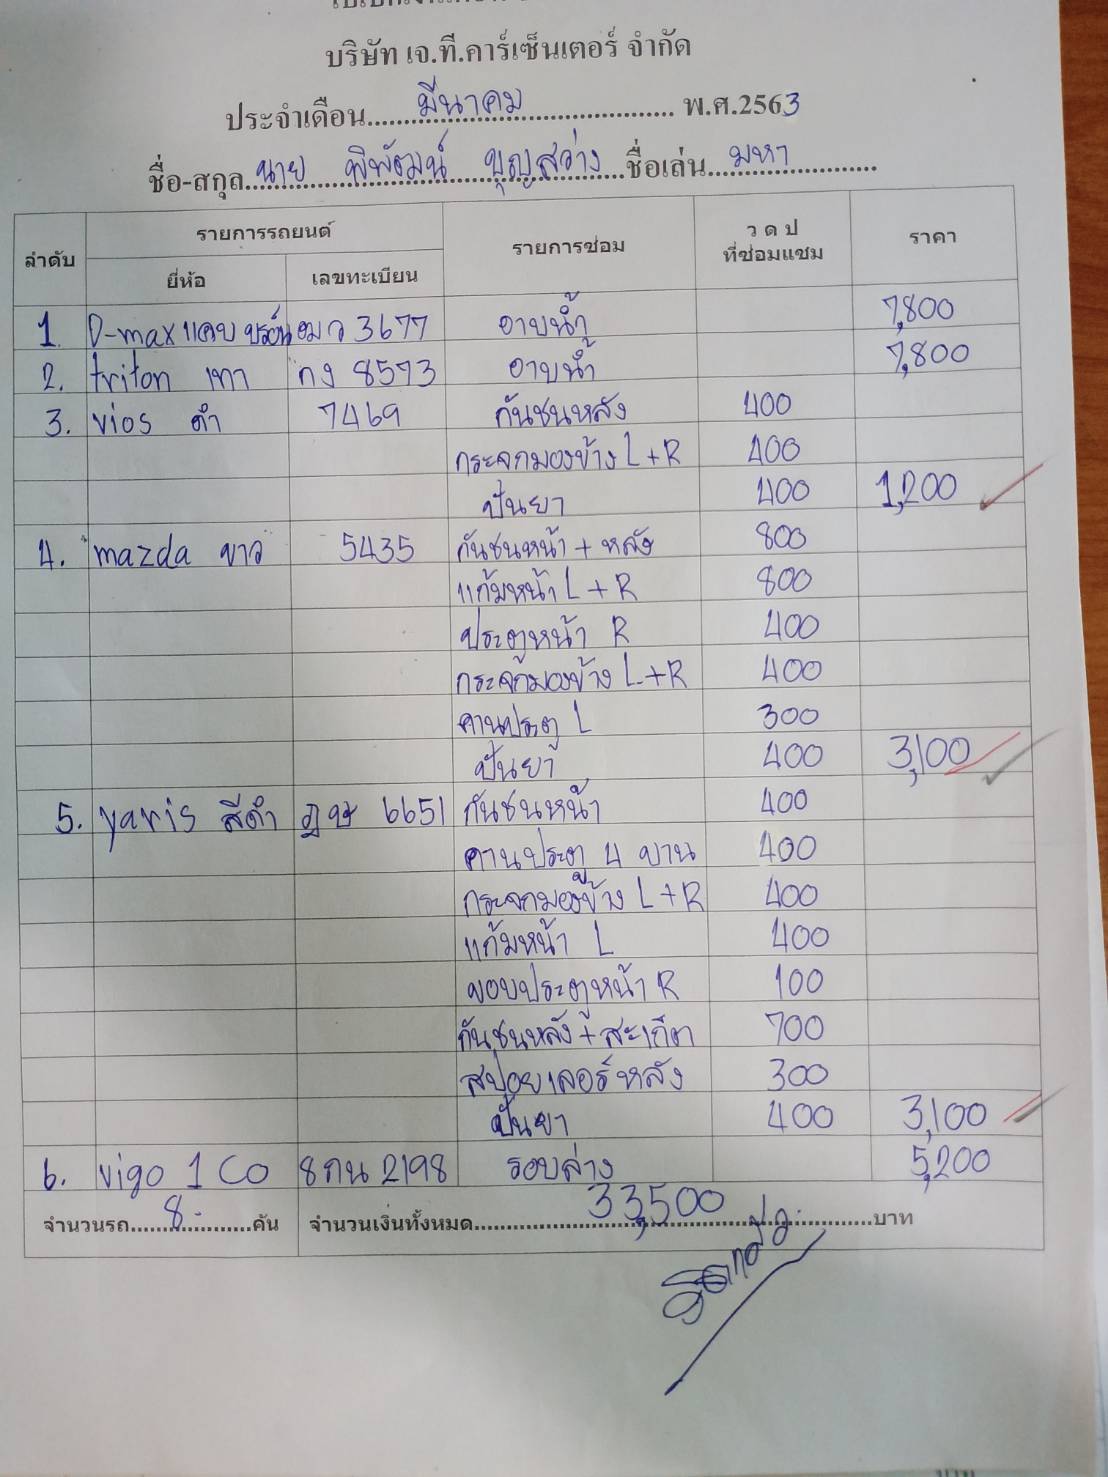 บริษัท เจ.ที.คาร์เซ็นเตอร์ จำกัด
ประจำเดือน.....มีนาคม..... พ.ศ.2563
ชื่อ-สกุล.นาย พิพัฒน์ บุญสว่าง.ชื่อเล่น..มหา.....
ลำดับ รายการรถยนต์ รายการซ่อม ว ด ป ที่ซ่อมแซม ราคา
ยี่ห้อ เลขทะเบียน
1. D-max แคบ บรอนซ์ 3677 อาบน้ำ 7,800
2. triton เทา กง 8573 อาบน้ำ 7,800
3. vios ดำ 7469 กันชนหลัง 400
กระจกมองข้าง L+R 400
ปั่นยา 400 1,200
4. mazda ขาว 5435 กันชนหน้า + หลัง 800
แก้มหน้า L+R 800
ประตูหน้า R 400
กระจกมองข้าง L+R 400
คานประตู L 300
ปั่นยา 400 3,100
5. yaris สีดำ 6651 กันชนหน้า 400
คานประตู 4 บาน 400
กระจกมองข้าง L+R 400
แก้มหน้า L 400
ขอบประตูหน้า R 100
กันชนหลัง + สะเก็ต 700
สปอยเลอร์หลัง 300
ปั่นยา 400 3,100
6. vigo 1 Co 8กน 2198 รอบล่าง 5,200
จำนวนรถ....8.....คัน จำนวนเงินทั้งหมด.....33,500.....บาท